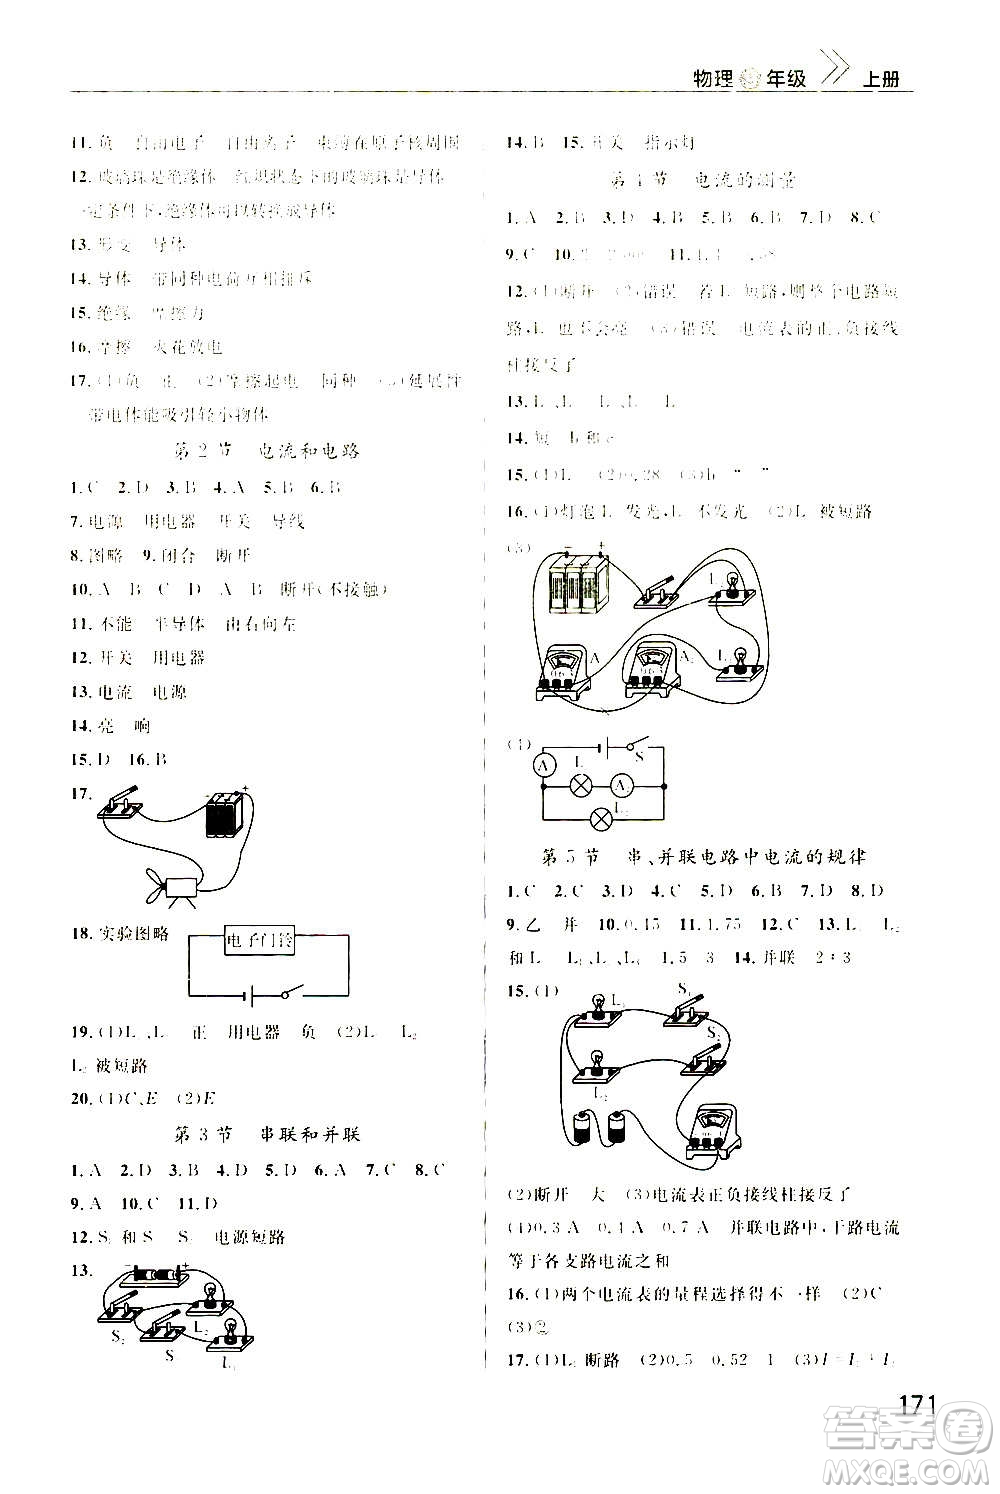 物理 年级 上册
11. 负 自由电子 自由离子 束缚在原子核周围
12. 玻璃珠是绝缘体 红炽状态下的玻璃珠是导体
一定条件下,绝缘体可以转换成导体
13. 形变 导体
14. 导体 带同种电荷互相排斥
15. 绝缘 摩擦力
16. 摩擦 火花放电
17. (1)负 正 (2)摩擦起电 同种 (3)延展性
带电体能吸引轻小物体
第2节 电流和电路
1. C 2. D 3. B 4. A 5. B 6. D
7. 电源 用电器 开关 导线
8. 图略 9. 闭合 断开
10. A B C D A B 断开(不接触)
11. 不能 半导体 由右向左
12. 开关 用电器
13. 电流 电源
14. 亮 响
15. D 16. B
17.
18. 实验图略
电子门铃
19. (1)L、L 正 用电器 负 (2)L L₂
L₂被短路
20. (1)C、E (2)E
第3节 串联和并联
1. A 2. D 3. B 4. D 5. D 6. A 7. C 8. C
9. A 10. C 11. D
12. S 和 S S 电源短路
13.
− +
S₂ S L₂ L₁
14. B 15. 开关 指示灯
第4节 电流的测量
1. A 2. B 3. D 4. D 5. A 6. A 7. D 8. C
9. C 10.
12. (1)断开 (2)错误 若L 短路,则整个电路短
路,L 也不会亮 (3)错误 电流表的正、负接线
柱接反了
13. L、L L L
14. 短 b和c
15. (1)L (2)0.28 (3)b
16. (1)灯泡L 发光,L 不发光 (2)L 被短路
(3)
− +
L₂
A A₂ L
(4)
A L A₂ S
L₂
第5节 串、并联电路中电流的规律
1. C 2. C 3. D 4. A 5. D 6. B 7. D 8. D
9. 乙 并 10. 0.15 11. 1.75 12. C 13. L L₂
和L L₂、L 1.5 3 14. 并联 2:3
15. (1)
L₁ S₁
S₂
L₂
(2)断开 大 (3)电流表正负接线柱接反了
(4)0.3 A 0.4 A 0.7 A 并联电路中,干路电流
等于各支路电流之和
16. (1)两个电流表的量程选择得不一样 (2)C
(3)②
17. (1)L₂断路 (2)0.5 0.52 1 (3)I=I₁+I₂
171
答案圈
MXQE.COM